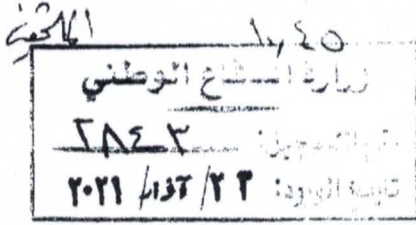 ١٠,٤٥
وزارة الدفاع الوطني
رقم التسجيل: ٢٨٤٣
تاريخ الورود: ٢٣ / آذار / ٢٠٢١